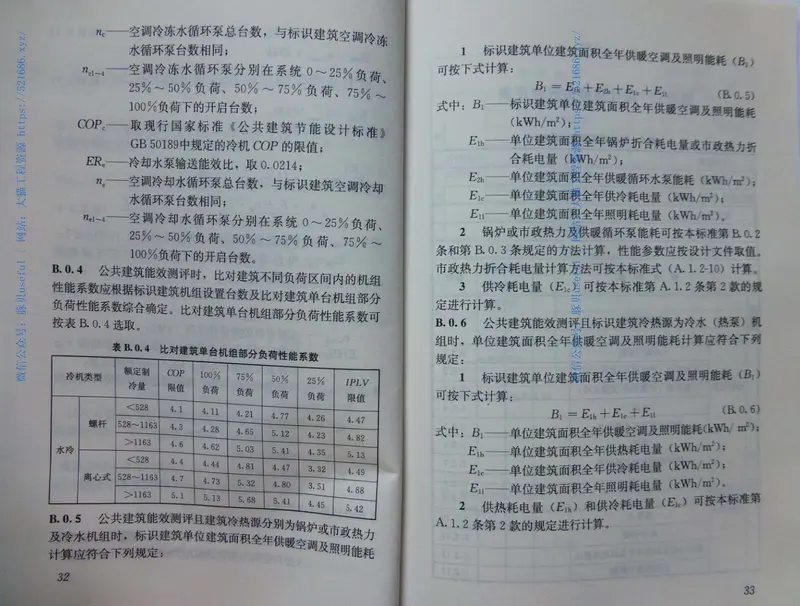 n_c——空调冷冻水循环泵总台数，与标识建筑空调冷冻
水循环泵台数相同；
n_c1~4——空调冷冻水循环泵分别在系统 0～25%负荷、
25%～50%负荷、50%～75%负荷、75%～
100%负荷下的开启台数；
COP_c——取现行国家标准《公共建筑节能设计标准》
GB 50189中规定的冷机COP的限值；
ER_e——冷却水泵输送能效比，取0.0214；
n_e——空调冷却水循环泵总台数，与标识建筑空调冷却
水循环泵台数相同；
n_e1~4——空调冷却水循环泵分别在系统 0～25%负荷、
25%～50%负荷、50%～75%负荷、75%～
100%负荷下的开启台数。
B.0.4 公共建筑能效测评时，比对建筑不同负荷区间内的机组
性能系数应根据标识建筑机组设置台数及比对建筑单台机组部分
负荷性能系数综合确定。比对建筑单台机组部分负荷性能系数可
按表 B.0.4 选取。
表 B.0.4 比对建筑单台机组部分负荷性能系数
冷机类型 额定制冷量 COP限值 100%负荷 75%负荷 50%负荷 25%负荷 IPLV限值
水冷 螺杆 <528 4.1 4.11 4.21 4.77 4.26 4.47
528～1163 4.3 4.28 4.65 5.12 4.23 4.82
>1163 4.6 4.62 5.03 5.41 4.35 5.13
离心式 <528 4.4 4.44 4.81 4.47 3.32 4.49
528～1163 4.7 4.73 5.32 4.80 3.51 4.88
>1163 5.1 5.13 5.68 5.41 4.45 5.42
B.0.5 公共建筑能效测评且建筑冷热源分别为锅炉或市政热力
及冷水机组时，标识建筑单位建筑面积全年供暖空调及照明能耗
计算应符合下列规定：
32
1 标识建筑单位建筑面积全年供暖空调及照明能耗（B₁）
可按下式计算：
B₁ = E₁ₕ + E₂ₕ + E₁c + E₁l (B.0.5)
式中：B₁——标识建筑单位建筑面积全年供暖空调及照明能耗
（kWh/m²）；
E₁ₕ——单位建筑面积全年锅炉折合耗电量或市政热力折
合耗电量（kWh/m²）；
E₂ₕ——单位建筑面积全年供暖循环水泵能耗（kWh/m²）；
E₁c——单位建筑面积全年供冷耗电量（kWh/m²）；
E₁l——单位建筑面积全年照明耗电量（kWh/m²）。
2 锅炉或市政热力及供暖循环泵能耗可按本标准第 B.0.2
条和第 B.0.3 条规定的方法计算，性能参数应按设计文件取值。
市政热力折合耗电量计算方法可按本标准式（A.1.2-10）计算。
3 供冷耗电量（E₁c）可按本标准第 A.1.2 条第 2 款的规
定进行计算。
B.0.6 公共建筑能效测评且标识建筑冷热源为冷水（热泵）机
组时，单位建筑面积全年供暖空调及照明能耗计算应符合下列
规定：
1 标识建筑单位建筑面积全年供暖空调及照明能耗（B₁）
可按下式计算：
B₁ = E₁ₕ + E₁c + E₁l (B.0.6)
式中：B₁——单位建筑面积全年供暖空调及照明能耗（kWh/m²）；
E₁ₕ——单位建筑面积全年供热耗电量（kWh/m²）；
E₁c——单位建筑面积全年供冷耗电量（kWh/m²）；
E₁l——单位建筑面积全年照明耗电量（kWh/m²）。
2 供热耗电量（E₁ₕ）和供冷耗电量（E₁c）可按本标准第
A.1.2 条第 2 款的规定进行计算。
33